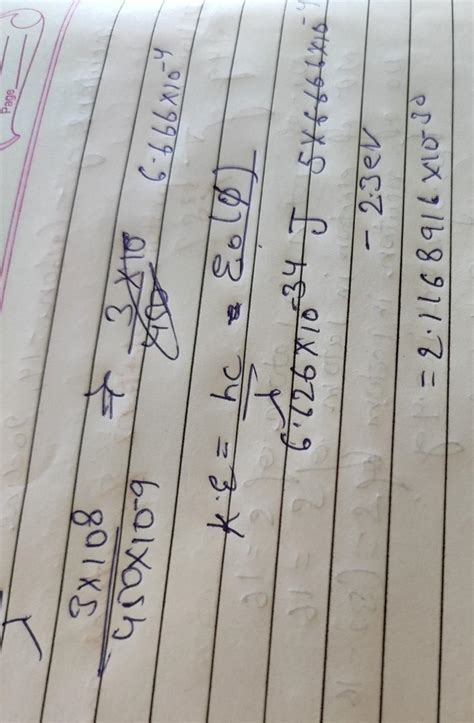 Page
3 × 10 8
450×10-9
⇒ 3 ×10
450
6.666×10-4
K.E = hc = Eo(ϕ)
λ
6.626×10-34 J 5×6.666×10-4
- 2.3ev
= 2.1168916 ×10-30